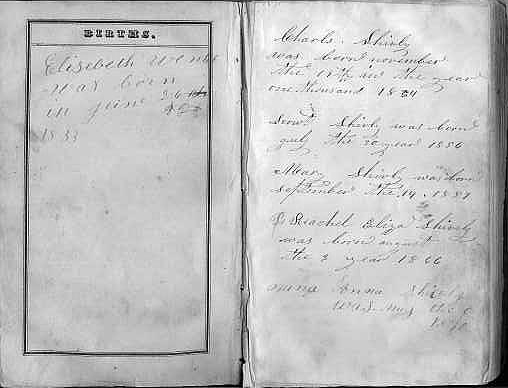 BIRTHS.
Elisebeth
was born
in june 26
1833
Charls. Shirly
was born november
the 17th in the year
one thousand 1854
Shirly was born
july the 20 year 1856
Mary Shirly was born
september the 14. 1857
Reachel Eliza Shirly
was born august
the 2 year 1866
Anna Shirly
was the